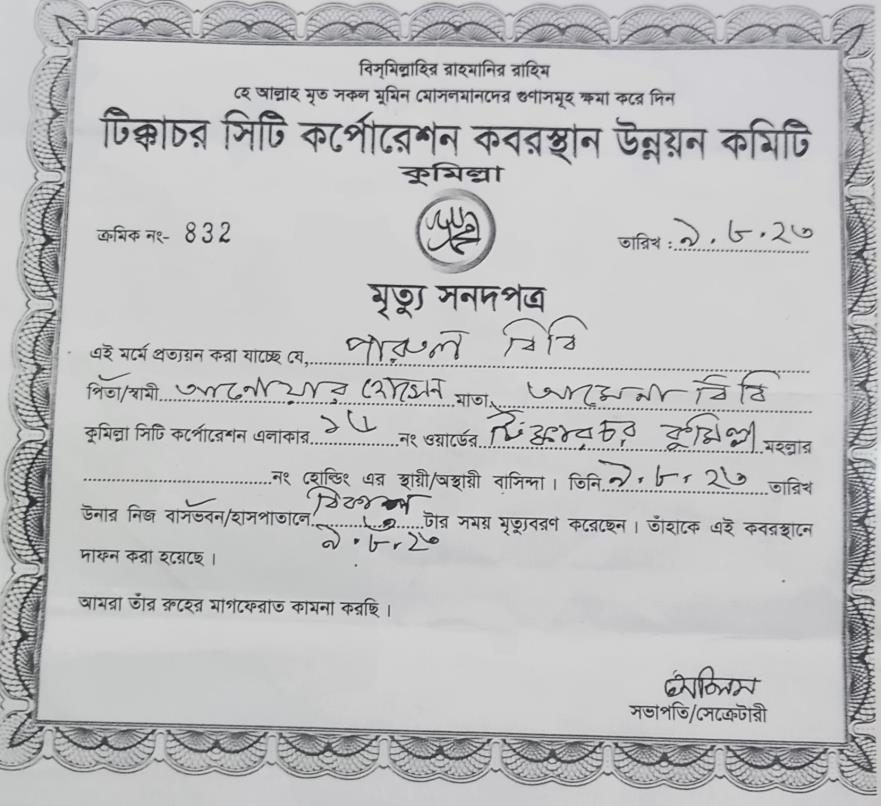 বিস্‌মিল্লাহির রাহমানির রাহিম
হে আল্লাহ মৃত সকল মুমিন মোসলমানদের গুণাসমূহ ক্ষমা করে দিন
টিক্কাচর সিটি কর্পোরেশন কবরস্থান উন্নয়ন কমিটি
কুমিল্লা
ক্রমিক নং- 832
তারিখ : ৯.৮.২৩
মৃত্যু সনদপত্র
এই মর্মে প্রত্যয়ন করা যাচ্ছে যে, পারুল বিবি
পিতা/স্বামী আনোয়ার হোসেন মাতা আমেনা বিবি
কুমিল্লা সিটি কর্পোরেশন এলাকার নং ওয়ার্ডের টিক্কারচর কুমিল্লা মহল্লার
নং হোল্ডিং এর স্থায়ী/অস্থায়ী বাসিন্দা । তিনি ৯.৮.২৩ তারিখ
উনার নিজ বাসভবন/হাসপাতালে বিকাল টার সময় মৃত্যুবরণ করেছেন । তাঁহাকে এই কবরস্থানে
৯.৮.২৩
দাফন করা হয়েছে ।
আমরা তাঁর রুহের মাগফেরাত কামনা করছি ।
সভাপতি/সেক্রেটারী